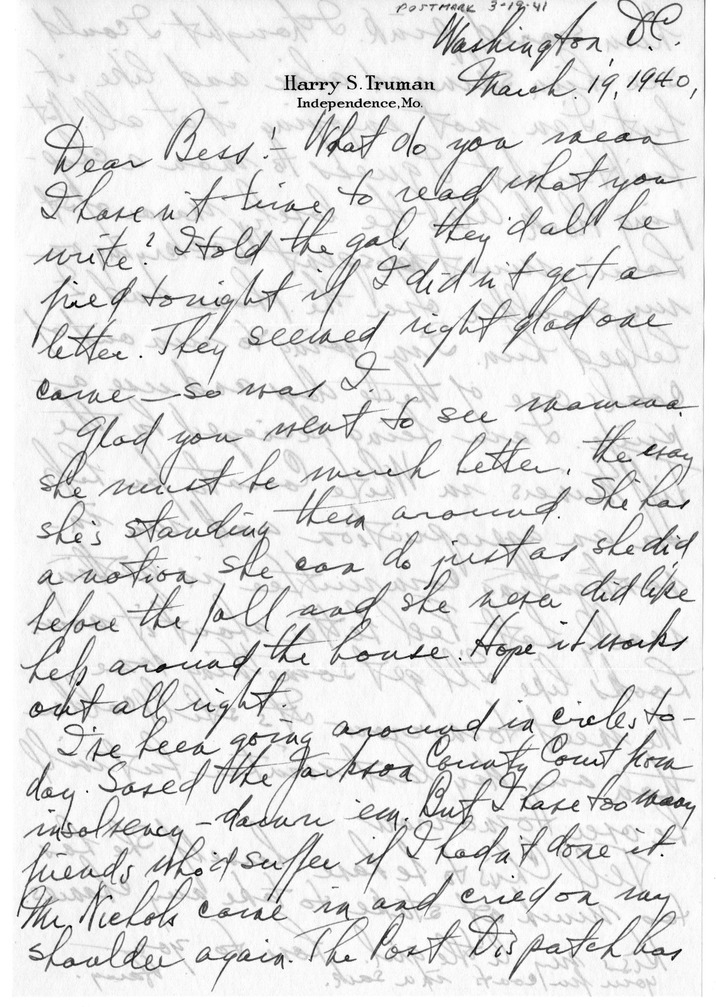 POSTMARK 3-19-41
Washington, D.C.
Harry S. Truman
Independence, Mo.
March. 19, 1940,
Dear Bess:- What do you mean
I haven't time to read what you
write? I told the gals they'd all be
fired tonight if I didn't get a
letter. They seemed right glad one
came – so was I.
Glad you went to see mamma.
she must be much better, the way
she's standing them around. She has
a notion she can do just as she did
before the fall and she never did like
help around the house. Hope it works
out all right.
I've been going around in circles to-
day. Saved the Jackson County Court from
insolvency – damn 'em. But I have too many
friends who'd suffer if I hadn't done it.
Mr. Nichols came in and cried on my
shoulder again. The Post Dispatch has